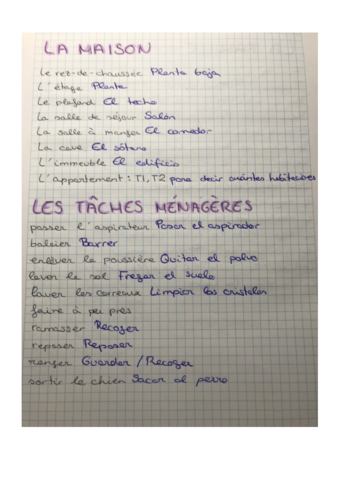 LA MAISON
Le rez-de-chaussée Planta baja
L'étage Planta
Le plafond El techo
La salle de séjour Salón
La salle à manger El comedor
La cave El sótano
L'immeuble El edificio
L'appartement : T1, T2 para decir cuántas habitaciones
LES TÂCHES MÉNAGÈRES
passer l'aspirateur Pasar el aspirador
balaier Barrer
enlever la poussière Quitar el polvo
laver le sol Fregar el suelo
laver les carreaux Limpiar los cristales
faire à peu près
ramasser Recoger
repasser Reposar
ranger Guardar / Recoger
sortir le chien Sacar al perro